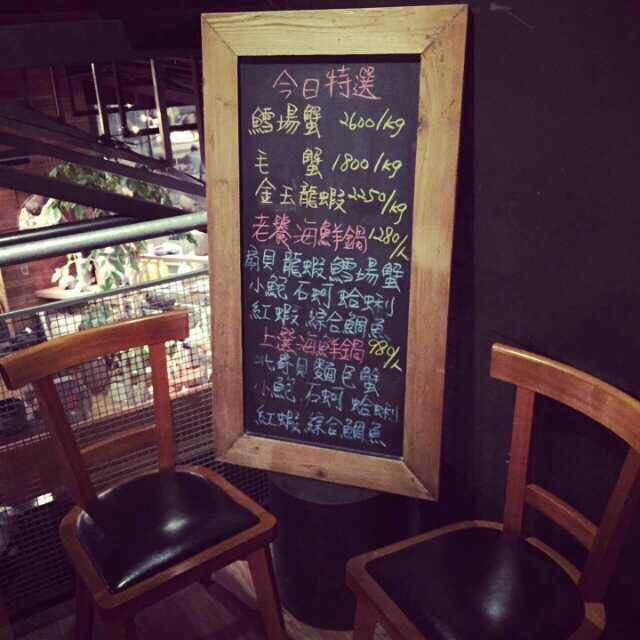 今日特選
鱈場蟹 2600/kg
毛 蟹 1800/kg
金玉龍蝦 2250/kg
老饕海鮮鍋 1280/人
扇貝 龍蝦 鱈場蟹
小鮑 石蚵 蛤蜊
紅蝦 綜合鯛魚
上選海鮮鍋 980/人
北寄貝 麵包蟹
小鮑 石蚵 蛤蜊
紅蝦 綜合鯛魚